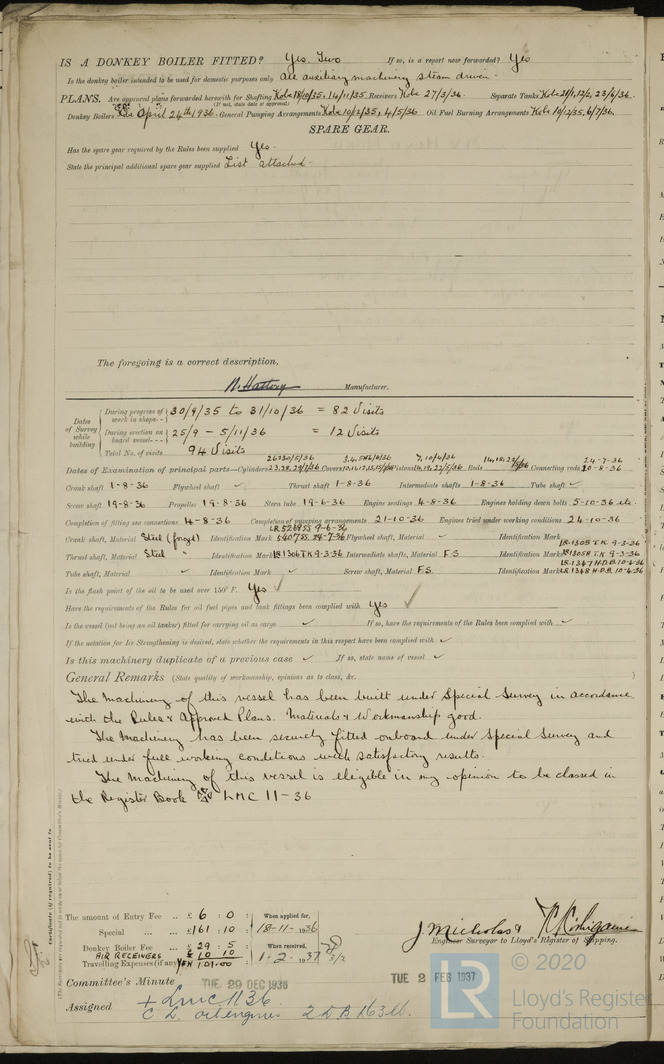 IS A DONKEY BOILER FITTED? Yes. Two If so, is a report now forwarded? Yes
Is the donkey boiler intended to be used for domestic purposes only all auxiliary machinery steam driven.
PLANS. Are approved plans forwarded herewith for Shafting Kobe 18/10/35, 14/11/35. Receivers Kobe 27/3/36. Separate Tanks Kobe 12/2, 23/6/36.
(If not, state date of approval)
Donkey Boilers April 24th 1936. General Pumping Arrangements Kobe 10/2/35, 4/5/36 Oil Fuel Burning Arrangements Kobe 10/2/35, 6/7/36.
SPARE GEAR.
Has the spare gear required by the Rules been supplied Yes.
State the principal additional spare gear supplied List attached.
The foregoing is a correct description,
Manufacturer.
Dates of Survey while building
During progress of work in shops-- 30/9/35 to 31/10/36 = 82 Visits
During erection on board vessel--- 25/9 - 5/11/36 = 12 Visits
Total No. of visits 94 Visits
Dates of Examination of principal parts—Cylinders Covers Pistons Rods Connecting rods
Crank shaft 1-8-36 Flywheel shaft Thrust shaft 1-8-36 Intermediate shafts 1-8-36 Tube shaft
Screw shaft 19-8-36 Propeller 19-8-36 Stern tube 19-6-36 Engine seatings 4-8-36 Engines holding down bolts 5-10-36 etc.
Completion of fitting sea connections 14-8-36 Completion of pumping arrangements 21-10-36 Engines tried under working conditions 24-10-36
Crank shaft, Material Steel (forged) Identification Mark Flywheel shaft, Material Identification Mark LR1305 T.K 9-3-36
Thrust shaft, Material Steel " Identification Mark LR1304 T.K 9-3-36 Intermediate shafts, Material F.S Identification Marks LR1305H T.K 9-3-36
LR1347 H.D.B. 10-6-36
Tube shaft, Material Identification Mark Screw shaft, Material F.S. Identification Mark LR1348 H.D.B. 10-6-36
Is the flash point of the oil to be used over 150° F. Yes ✓
Have the requirements of the Rules for oil fuel pipes and tank fittings been complied with Yes ✓
Is the vessel (not being an oil tanker) fitted for carrying oil as cargo ✓ If so, have the requirements of the Rules been complied with ✓
If the notation for Ice Strengthening is desired, state whether the requirements in this respect have been complied with ✓
Is this machinery duplicate of a previous case ✓ If so, state name of vessel ✓
General Remarks (State quality of workmanship, opinions as to class, &c. )
The Machinery of this vessel has been built under Special Survey in accordance
with the Rules & Approved Plans. Materials & Workmanship good.
The Machinery has been securely fitted onboard under Special Survey and
tried under full working conditions with satisfactory results.
The Machinery of this vessel is eligible in my opinion to be classed in
the Register Book LMC 11-36
The amount of Entry Fee .. £ 6 : 0 : When applied for,
Special .. £ 161 : 10 : 18-11-1936
Donkey Boiler Fee .. £ 29 : 5 When received,
AIR RECEIVERS £ 10 10
Travelling Expenses (if any) YEN 101.00 1.2.1937
Engineer Surveyor to Lloyd's Register of Shipping.
Committee's Minute TUE. 29 DEC 1936 TUE 2 FEB 1937
Assigned + LMC 11 36
C.L. oil engines 2 D B 163 lb.
LR
© 2020
Lloyd's Register
Foundation